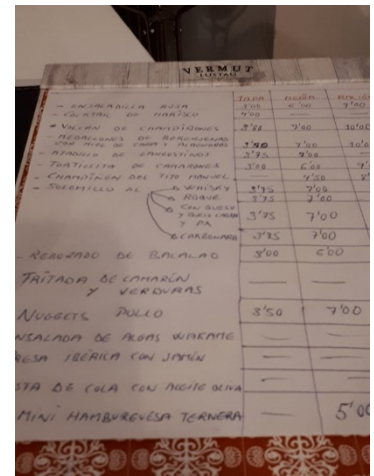 VERMUT
LUSTAU
TAPA MEDIA RACIÓN
- ENSALADILLA RUSA 3'00 6'00 7'00
- COCKTAIL DE MARISCO 4'00
- VOLCÁN DE CHAMPIÑONES 3'75 7'00 10'00
- MEDALLONES DE BERENJENAS
CON MIEL DE CAÑA Y ALMENDRAS 3'50 7'00
- ATADILLO DE LANGOSTINOS 3'75
- TORTILLITA DE CAMARONES 3'00 6'00
- CHAMPIÑÓN DEL TITO MANUEL — 4'50
- SOLOMILLO AL WHISKY 3'75 7'00
ROQUE 3'75 7'00
CON QUESO
Y 3'75 7'00
Y PX
CARBONARA 3'75 7'00
- REBOZADO DE BACALAO 3'00 6'00
FRITADA DE CAMARÓN — —
Y VERDURAS
NUGGETS POLLO 3'50 7'00
NSALADA DE ALGAS WAKAME — —
RESA IBÉRICA CON JAMÓN — —
STA DE COLA CON ACEITE OLIVA — —
MINI HAMBURGUESA TERNERA — 5'00